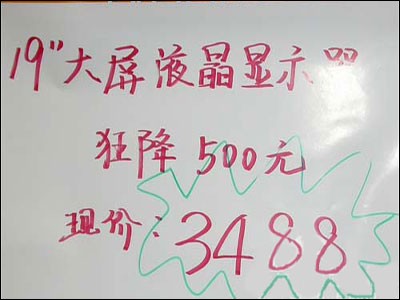 19"大屏液晶显示器
狂降500元
现价:3488